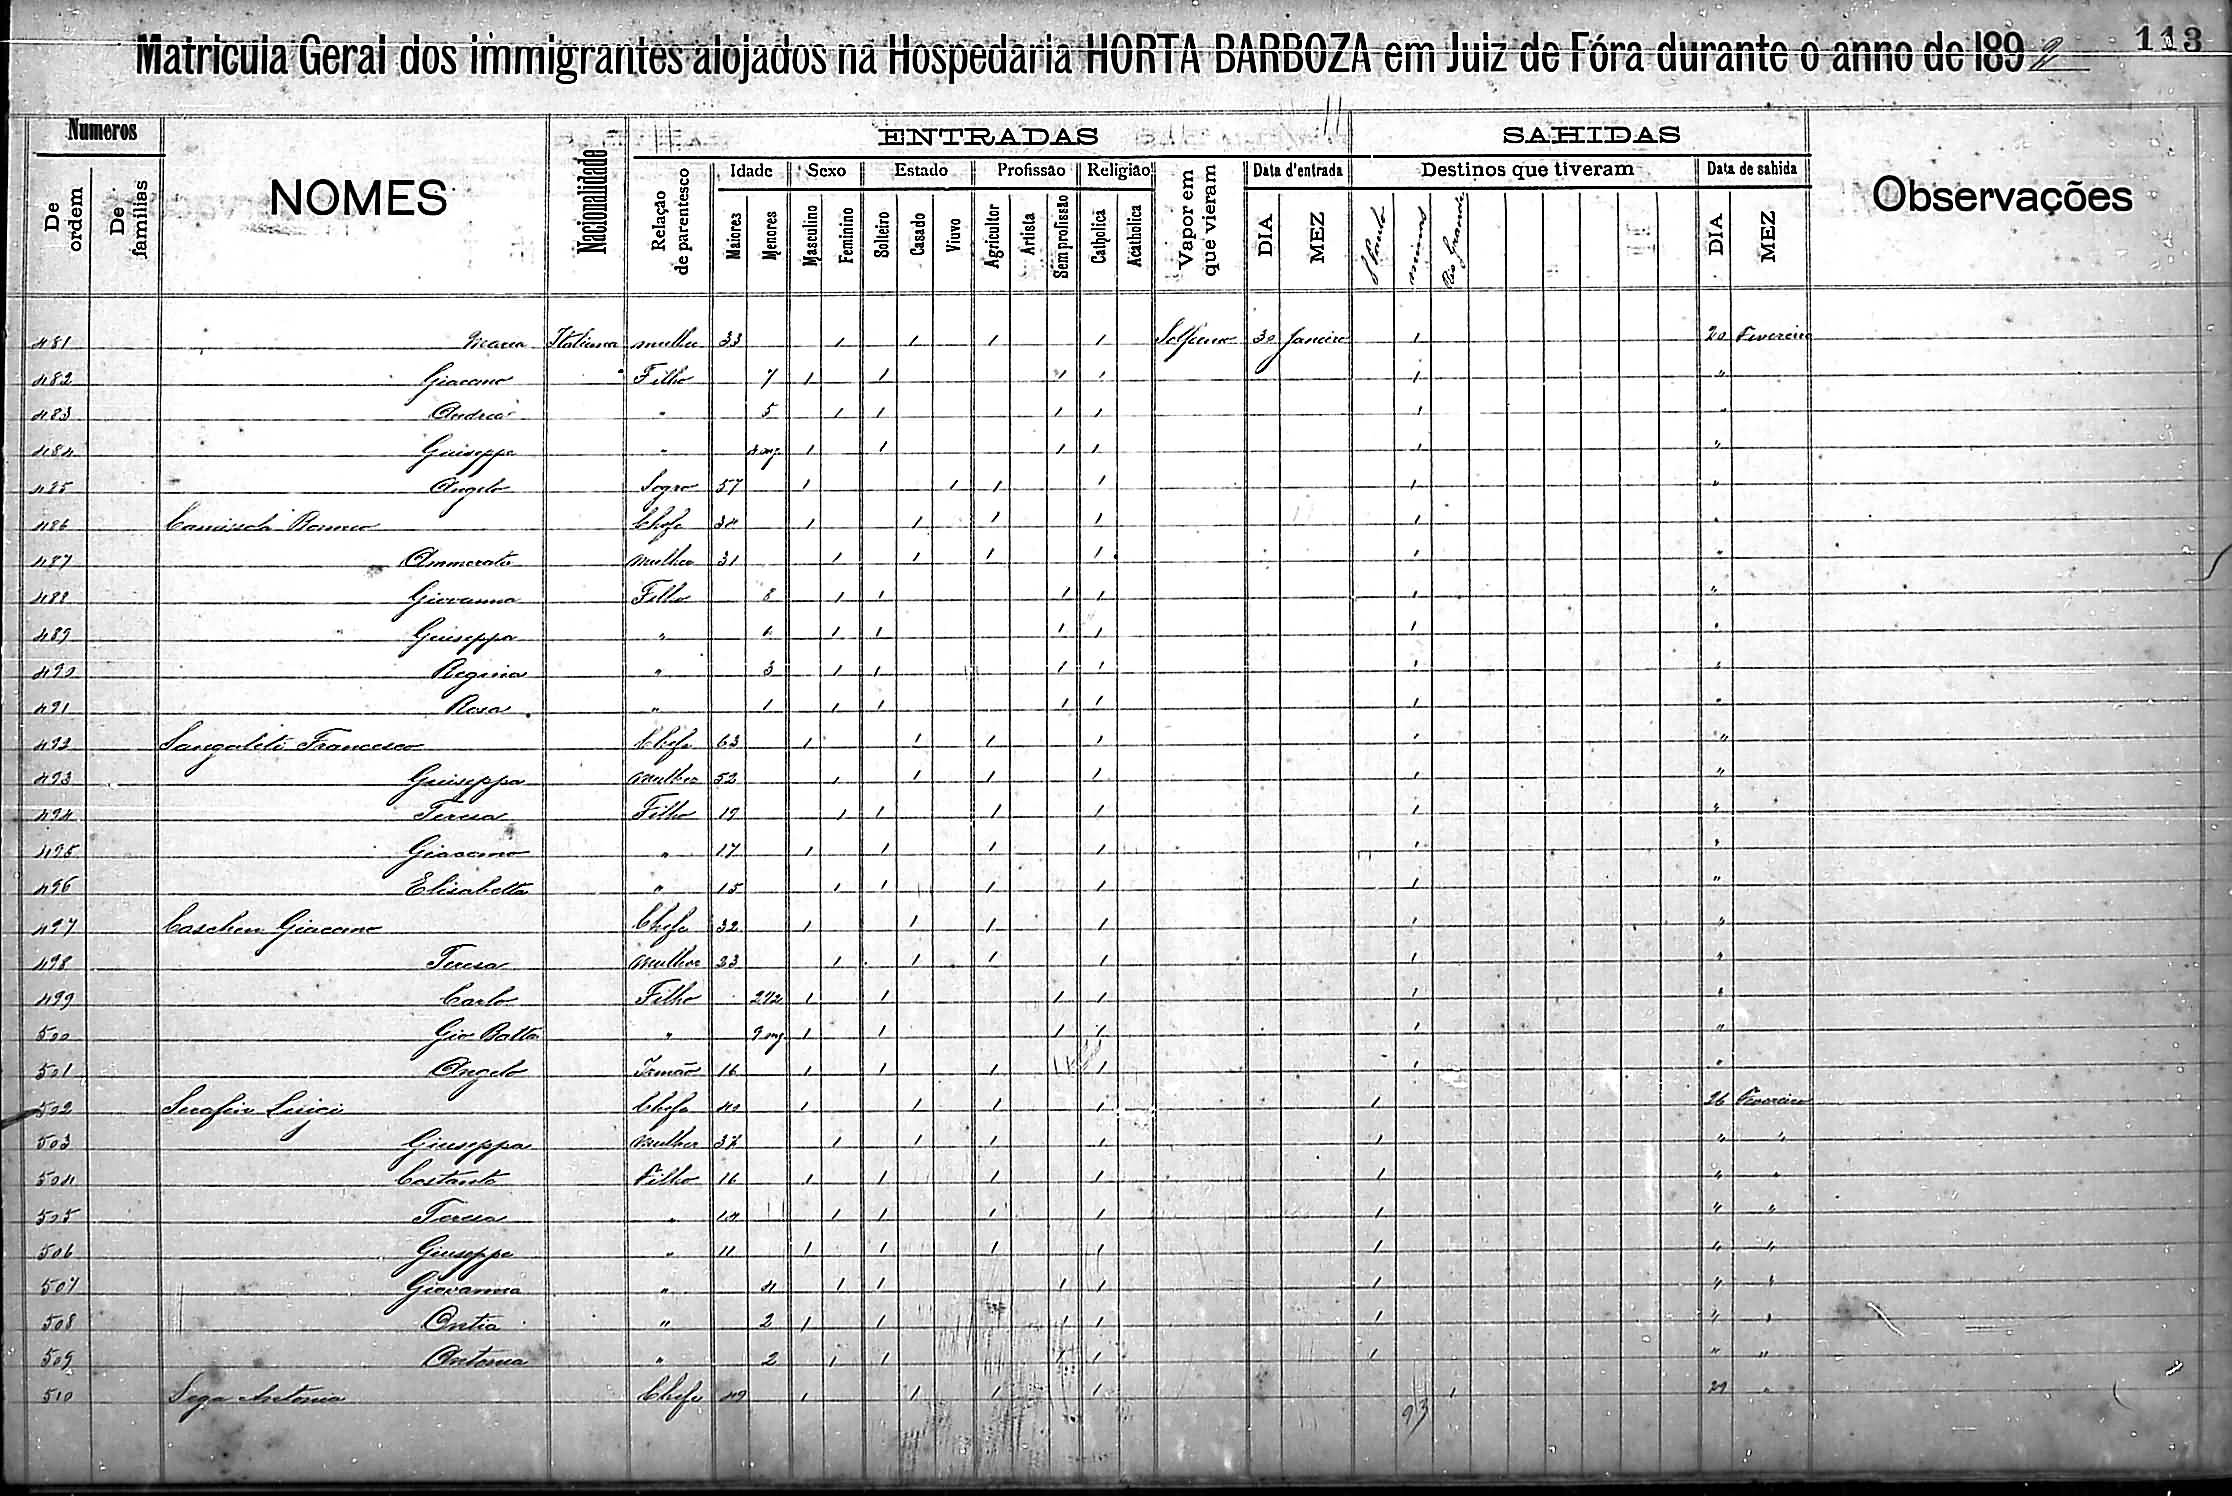 Matricula Geral dos immigrantes alojados na Hospedaria HORTA BARBOZA em Juiz de Fóra durante o anno de 1892 113
Numeros ENTRADAS SAHIDAS
De ordem De familias NOMES Nacionalidade Relação de parentesco Idade Sexo Estado Profissão Religião Vapor em que vieram Data d'entrada Destinos que tiveram Data de sahida Observações
Maiores Menores Masculino Feminino Solteiro Casado Viuvo Agricultor Artista Sem profissão Catholica Acatholica DIA MEZ S Paulo minas Rio Grande DIA MEZ
481 Maria Italiana mulher 33 1 1 1 1 Solferino 30 Janeiro 1 20 Fevereiro
482 Giacomo " Filho 7 1 1 1 1 1 "
483 Andrea " 5 1 1 1 1 1 "
484 Giuseppe " 4 mz 1 1 1 1 1 "
485 Angelo Sogro 57 1 1 1 1 1 "
486 Chefe 34 1 1 1 1 1 "
487 mulher 31 1 1 1 1 1 "
488 Giovanna Filho 8 1 1 1 1 1 "
489 Giuseppa " 6 1 1 1 1 1 "
490 Regina " 3 1 1 1 1 1 "
491 Rosa " 1 1 1 1 1 1 "
492 Sangaleti Francesco Chefe 63 1 1 1 1 1 "
493 Giuseppa mulher 52 1 1 1 1 1 "
494 Teresa Filho 19 1 1 1 1 1 "
495 Giacomo " 17 1 1 1 1 1 "
496 Elisabetta " 15 1 1 1 1 1 "
497 Giacomo Chefe 32 1 1 1 1 1 "
498 Teresa mulher 23 1 1 1 1 1 "
499 Carlo Filho 2 1/2 1 1 1 1 1 "
500 Gio Batta " 9 mz 1 1 1 1 1 "
501 Angelo Irmão 16 1 1 1 1 1 "
502 Serafin Luigi Chefe 40 1 1 1 1 1 26 Fevereiro
503 Giuseppa mulher 37 1 1 1 1 1 " "
504 Costanto Filho 16 1 1 1 1 1 " "
505 Teresa " 14 1 1 1 1 1 " "
506 Giuseppe " 11 1 1 1 1 1 " "
507 Giovanna " 4 1 1 1 1 1 " "
508 " 2 1 1 1 1 1 " "
509 Antonia " 2 1 1 1 1 1 " "
510 Sega Antonio Chefe 49 1 1 1 1 1 29 "
93